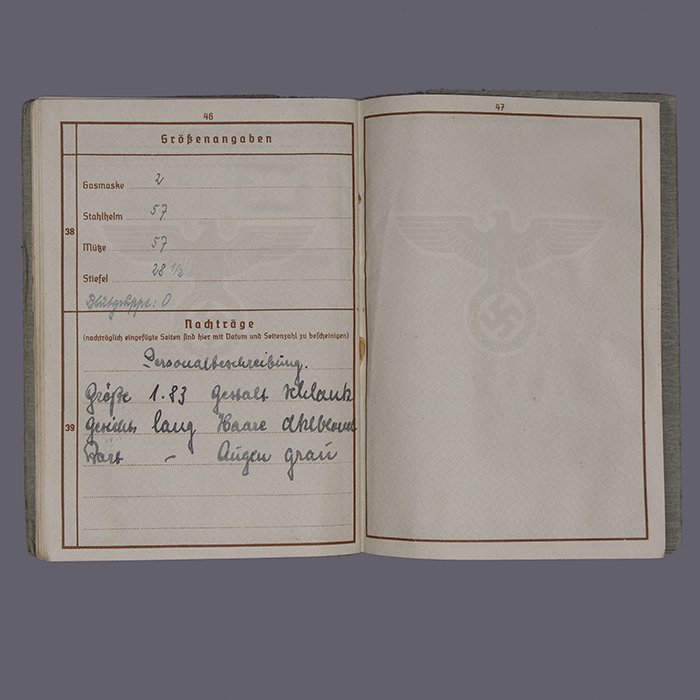 46
Größenangaben
38
Gasmaske 2
Stahlhelm 57
Mütze 57
Stiefel 28 1/2
Blutgruppe: O
Nachträge
(nachträglich eingefügte Seiten sind hier mit Datum und Seitenzahl zu bescheinigen)
39
Personalbeschreibung.
Größe 1.83 Gestalt schlank
Gesicht lang Haare dklblond
Bart – Augen grau
47